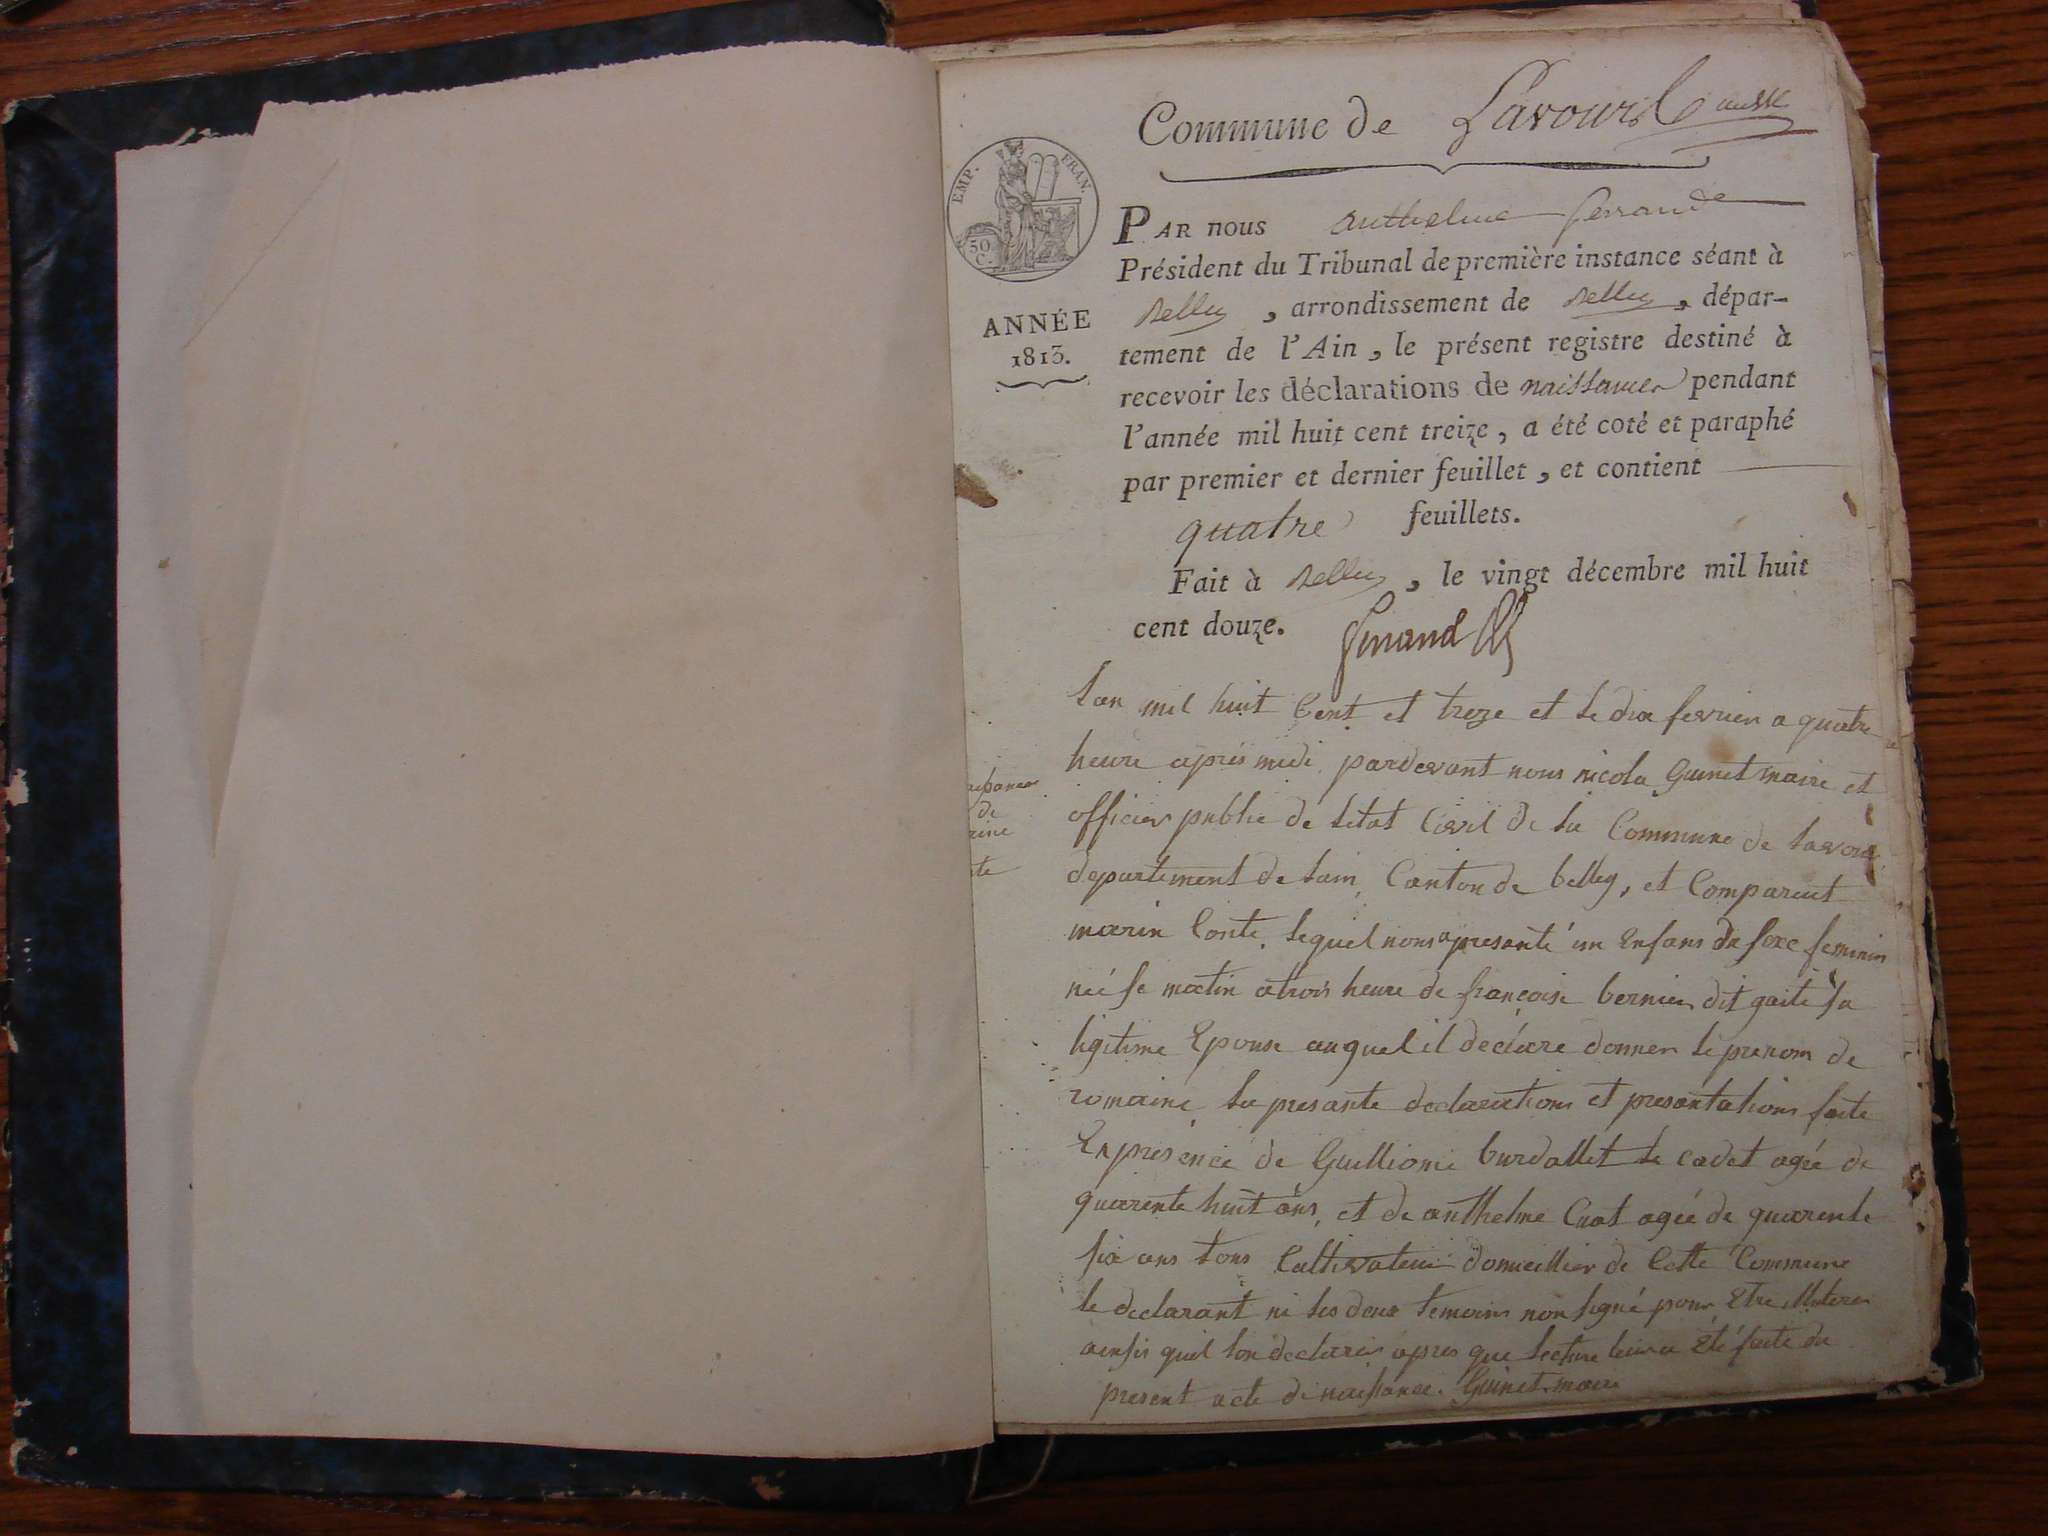 Commune de Lavours
EMP. FRAN.
50
C.
ANNÉE
1813.
PAR nous anthelme ferrand
Président du Tribunal de première instance séant à
Belley, arrondissement de Belley, dépar-
tement de l'Ain, le présent registre destiné à
recevoir les déclarations de naissances pendant
l'année mil huit cent treize, a été coté et paraphé
par premier et dernier feuillet, et contient
quatre feuillets.
Fait à Belley, le vingt décembre mil huit
cent douze. ferrand
Lan mil huit Cent et treze et le dix fevrier a quatre
heure après midi pardevant nous nicola Guinet maire et
officier public de letat Civil de la Commune de Lavour
departement de lain, Canton de belley, et Comparent
marin Conte, lequel nous a presanté un Enfans du sexe feminin
néé se matin a trois heure de françoise bernier dit gaité sa
legitime Epouse auquel il declare donner le prenom de
romaine la presante declarations et presantations faite
En presence de Guilliome burdallet le cadet agée de
quarente huit ans, et de anthelme Cuat agée de quarente
six ans tous Cultivateur domicillier de Cette Commune
le declarant ni les deux temoins non signé pour Etre illiteres
ainsis quil lon declarer apres que lecture leur a Eté faite du
present acte de naissance. Guinet maire